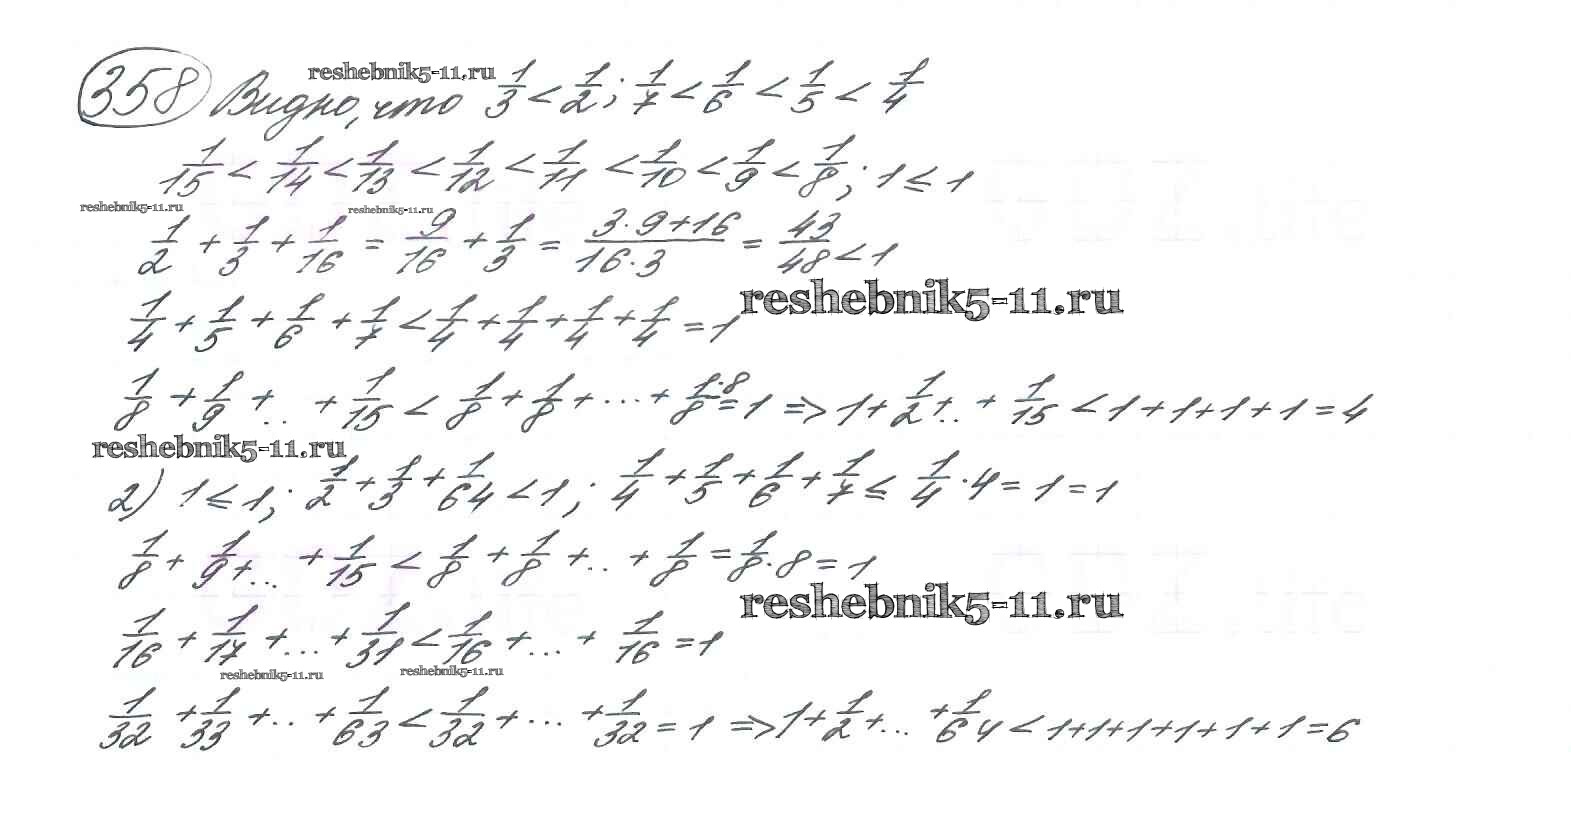 358 Видно, что 1/3 < 1/2; 1/7 < 1/6 < 1/5 < 1/4
reshebnik5-11.ru
1/15 < 1/14 < 1/13 < 1/12 < 1/11 < 1/10 < 1/9 < 1/8; 1 ≤ 1
reshebnik5-11.ru
reshebnik5-11.ru
1/2 + 1/3 + 1/16 = 9/16 + 1/3 = (3·9+16)/(16·3) = 43/48 < 1
reshebnik5-11.ru
1/4 + 1/5 + 1/6 + 1/7 < 1/4 + 1/4 + 1/4 + 1/4 = 1
1/8 + 1/9 + .. + 1/15 < 1/8 + 1/8 + ... + 1·8/8 = 1 => 1 + 1/2 + .. + 1/15 < 1+1+1+1 = 4
reshebnik5-11.ru
2) 1 ≤ 1; 1/2 + 1/3 + 1/64 < 1; 1/4 + 1/5 + 1/6 + 1/7 ≤ 1/4 · 4 = 1 = 1
1/8 + 1/9 + ... + 1/15 < 1/8 + 1/8 + .. + 1/8 = 1/8 · 8 = 1
reshebnik5-11.ru
1/16 + 1/17 + ... + 1/31 < 1/16 + ... + 1/16 = 1
reshebnik5-11.ru
reshebnik5-11.ru
1/32 + 1/33 + .. + 1/63 < 1/32 + ... + 1/32 = 1 => 1 + 1/2 + ... + 1/64 < 1+1+1+1+1+1 = 6